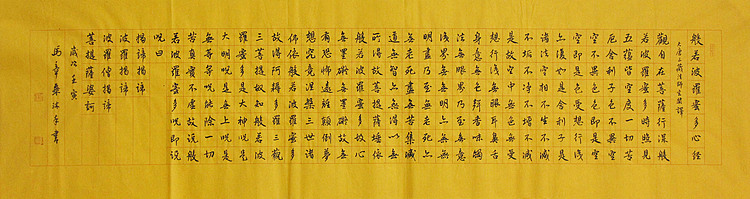 般若波羅蜜多心經
大唐三藏法師玄奘譯
觀自在菩薩行深般
若波羅蜜多時照見
五蘊皆空度一切苦
厄舍利子色不異空
空不異色色即是空
空即是色受想行識
亦復如是舍利子是
諸法空相不生不滅
不垢不淨不增不減
是故空中無色無受
想行識無眼耳鼻舌
身意無色聲香味觸
法無眼界乃至無意
識界無無明亦無無
明盡乃至無老死亦
無老死盡無苦集滅
道無智亦無得以無
所得故菩提薩埵依
般若波羅蜜多故心
無罣礙無罣礙故無
有恐怖遠離顛倒夢
想究竟涅槃三世諸
佛依般若波羅蜜多
故得阿耨多羅三藐
三菩提故知般若波
羅蜜多是大神咒是
大明咒是無上咒是
無等等咒能除一切
苦真實不虛故說般
若波羅蜜多咒即說
咒曰
揭諦揭諦
波羅揭諦
波羅僧揭諦
菩提薩婆訶
歲次壬寅
沐手書